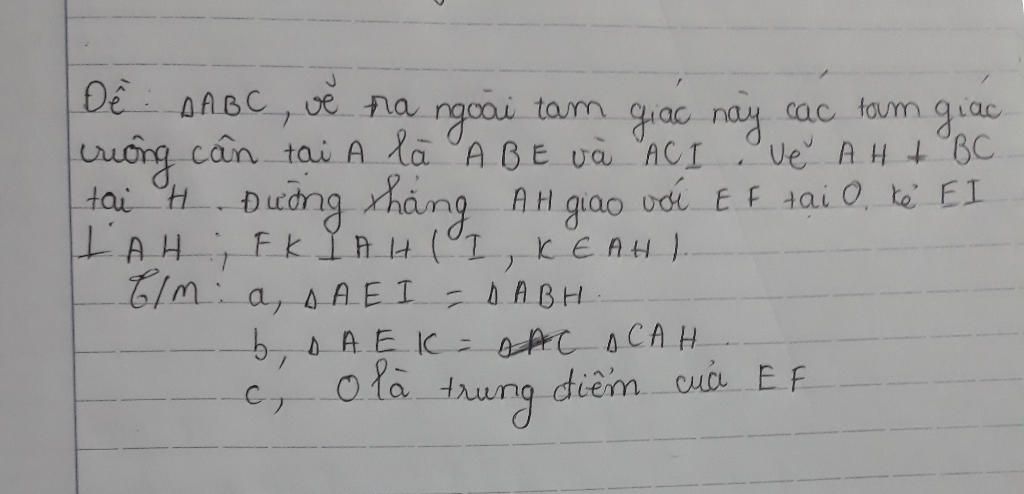 Đề: ΔABC, vẽ ra ngoài tam giác này các tam giác
vuông cân tại A là ABE và ACI. Vẽ AH ⊥ BC
tại H. Đường thẳng AH giao với EF tại O. Kẻ EI
⊥ AH; FK ⊥ AH (I, K ∈ AH).
C/m: a, ΔAEI = ΔABH.
b, ΔAEK = ΔCAH.
c, O là trung điểm của EF